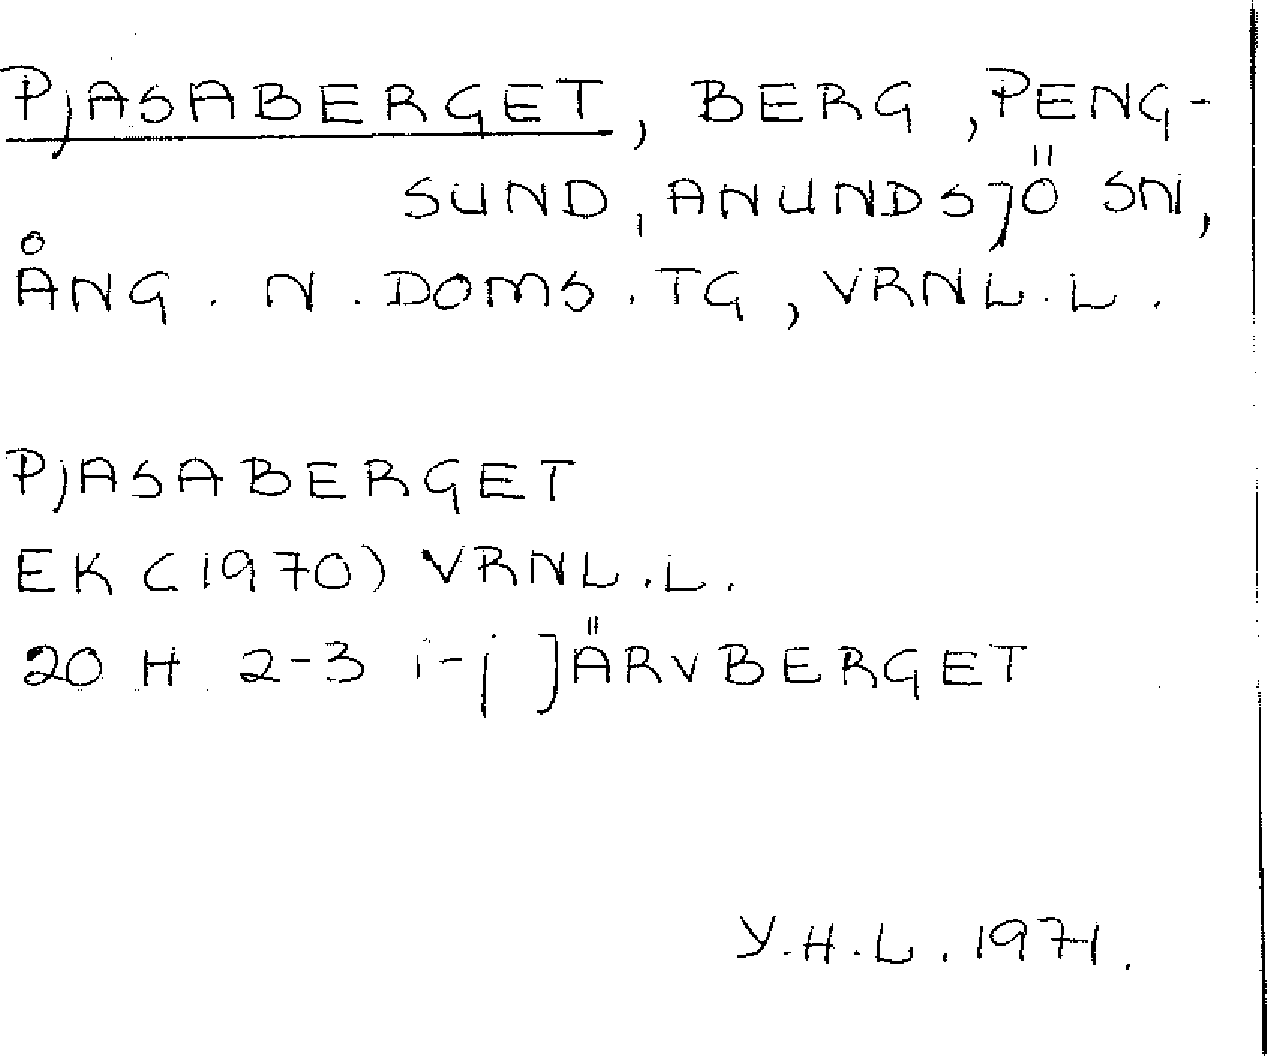 PJASABERGET, BERG, PENG-
SUND, ANUNDSJÖ SN,
ÅNG. N. DOMS. TG, VRNL. L.
PJASABERGET
EK (1970) VRNL. L.
20 H 2-3 i-j JÄRVBERGET
Y. H. L. 1971.